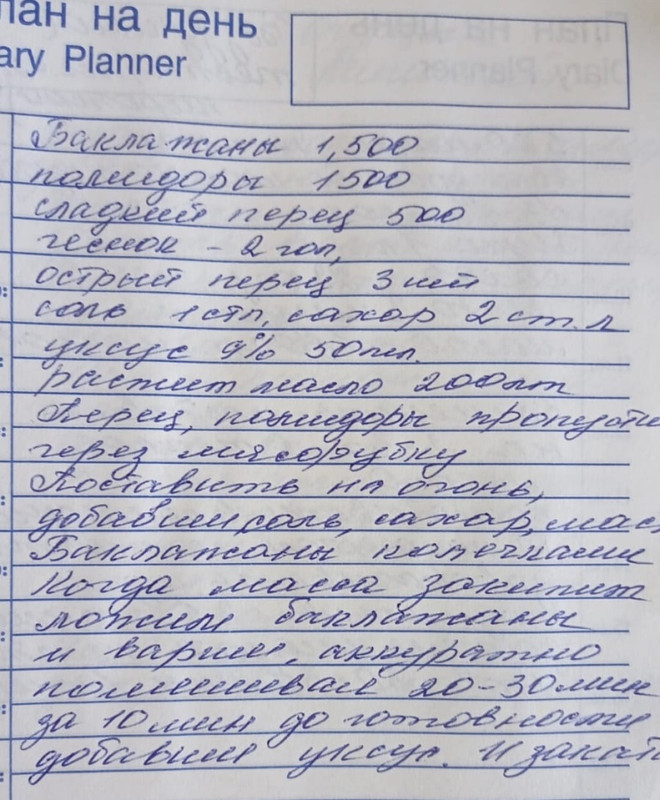 лан на день
ary Planner
Баклажаны 1,500
помидоры 1500
сладкий перец 500
чеснок - 2 гол,
острый перец 3 шт
соль 1 стл, сахар 2 ст.л
уксус 9% 50мл.
растит масло 200мл
Перец, помидоры пропусти
через мясорубку
Поставить на огонь,
добавим соль, сахар, мас
Баклажаны колечками
Когда масса закипит
ложим баклажаны
и варим, аккуратно
помешивая 20-30 мин
за 10 мин до готовности
добавим уксус. И закат